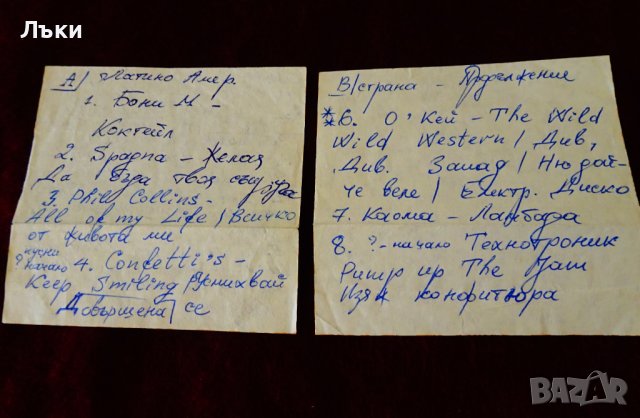 Лъки
А/ Латино Амер.
1. Бони М -
Коктейл
2. Spagna - Желая
Да бъда твоя съпруга
3. Phill Collins -
All of my Life / Всичко
от живота ми
? начало 4. Confetti's -
Keep Smiling / Усмихвай
Довършена / се
В/страна - Продължение
6. О'Кей - The Wild
Wild Western / Див,
Див. Запад / Ню дай-
че веле / Електр. Диско
7. Каома - Ламбада
8. ? - начало Технотроник
Pump up The Jam
Изяж конфитюра
BAZAR